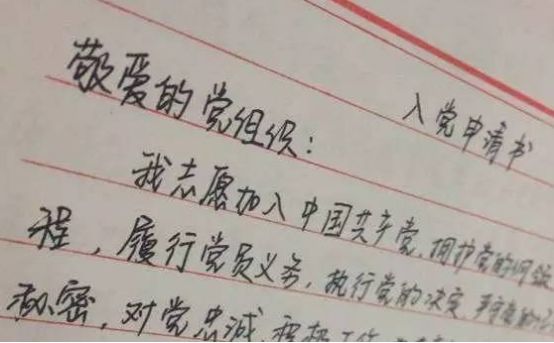 入党申请书
敬爱的党组织：
我志愿加入中国共产党，拥护党的纲领
程，履行党员义务，执行党的决定，严守党的纪
秘密，对党忠诚，积极工作